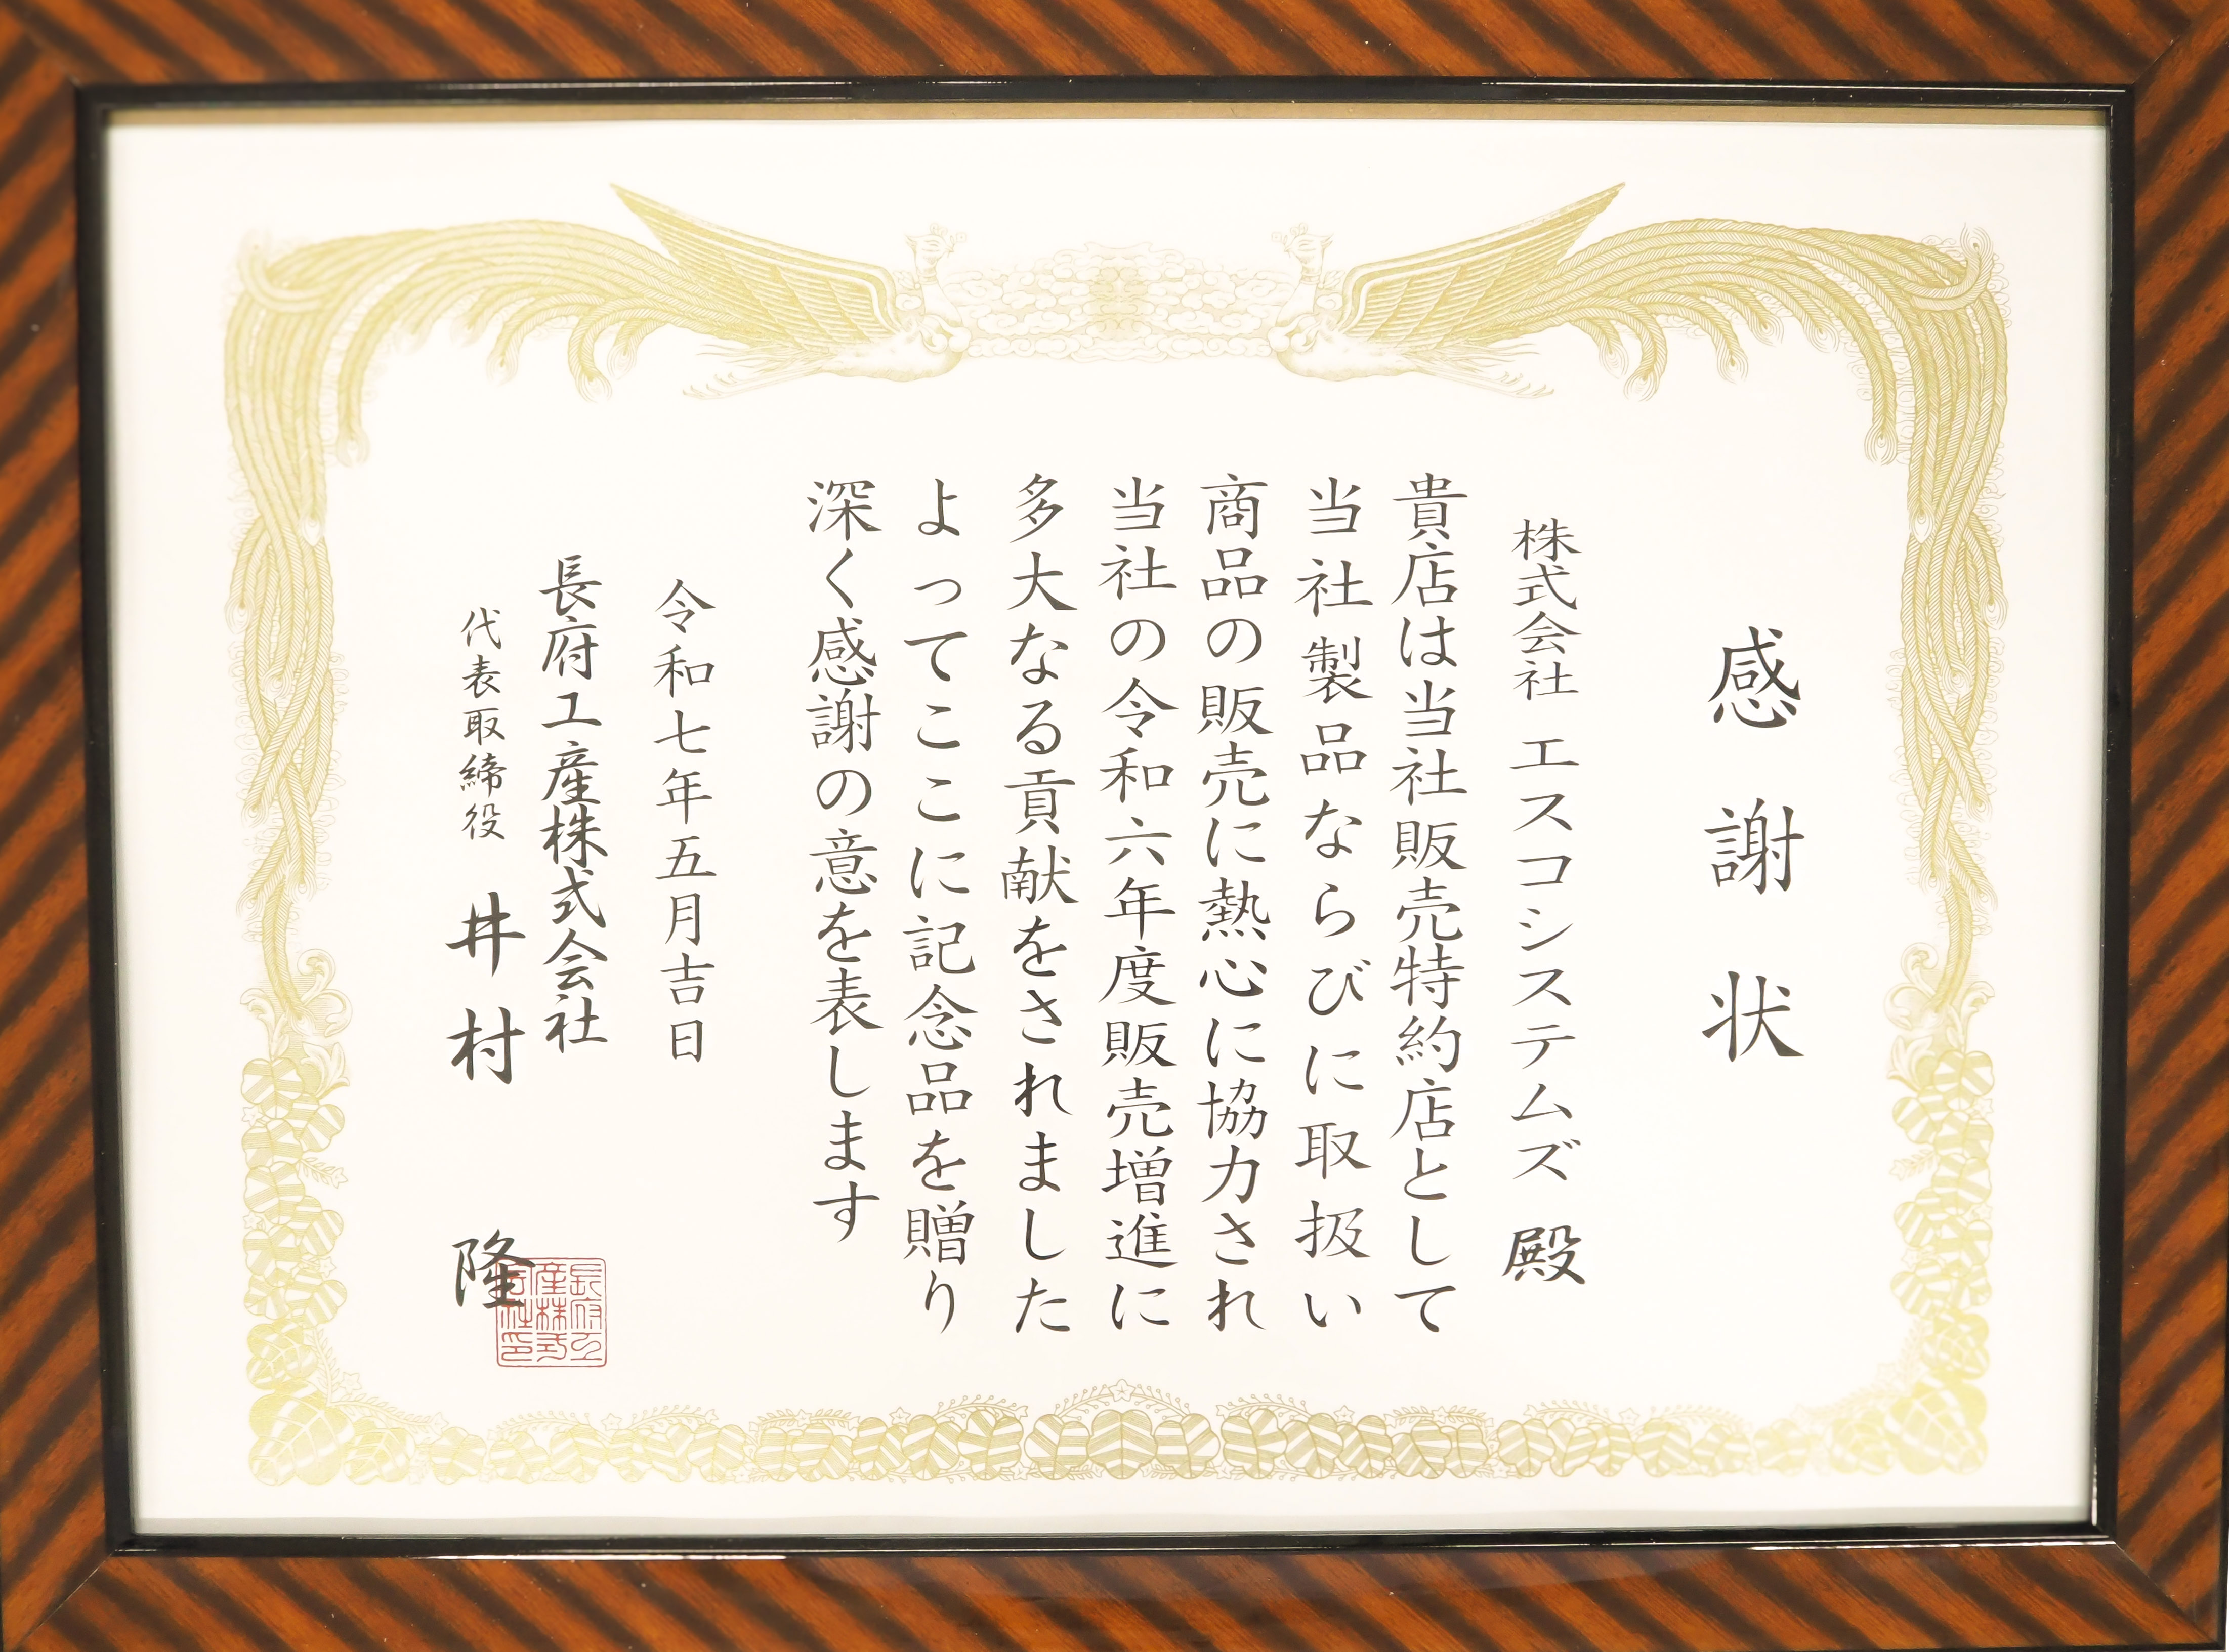 感謝状
株式会社 エスコシステムズ 殿
貴店は当社販売特約店として
当社製品ならびに取扱い
商品の販売に熱心に協力され
当社の令和六年度販売増進に
多大なる貢献をされました
よってここに記念品を贈り
深く感謝の意を表します
令和七年五月吉日
長府工産株式会社
代表取締役 井村 隆
長府工
産株式
会社印